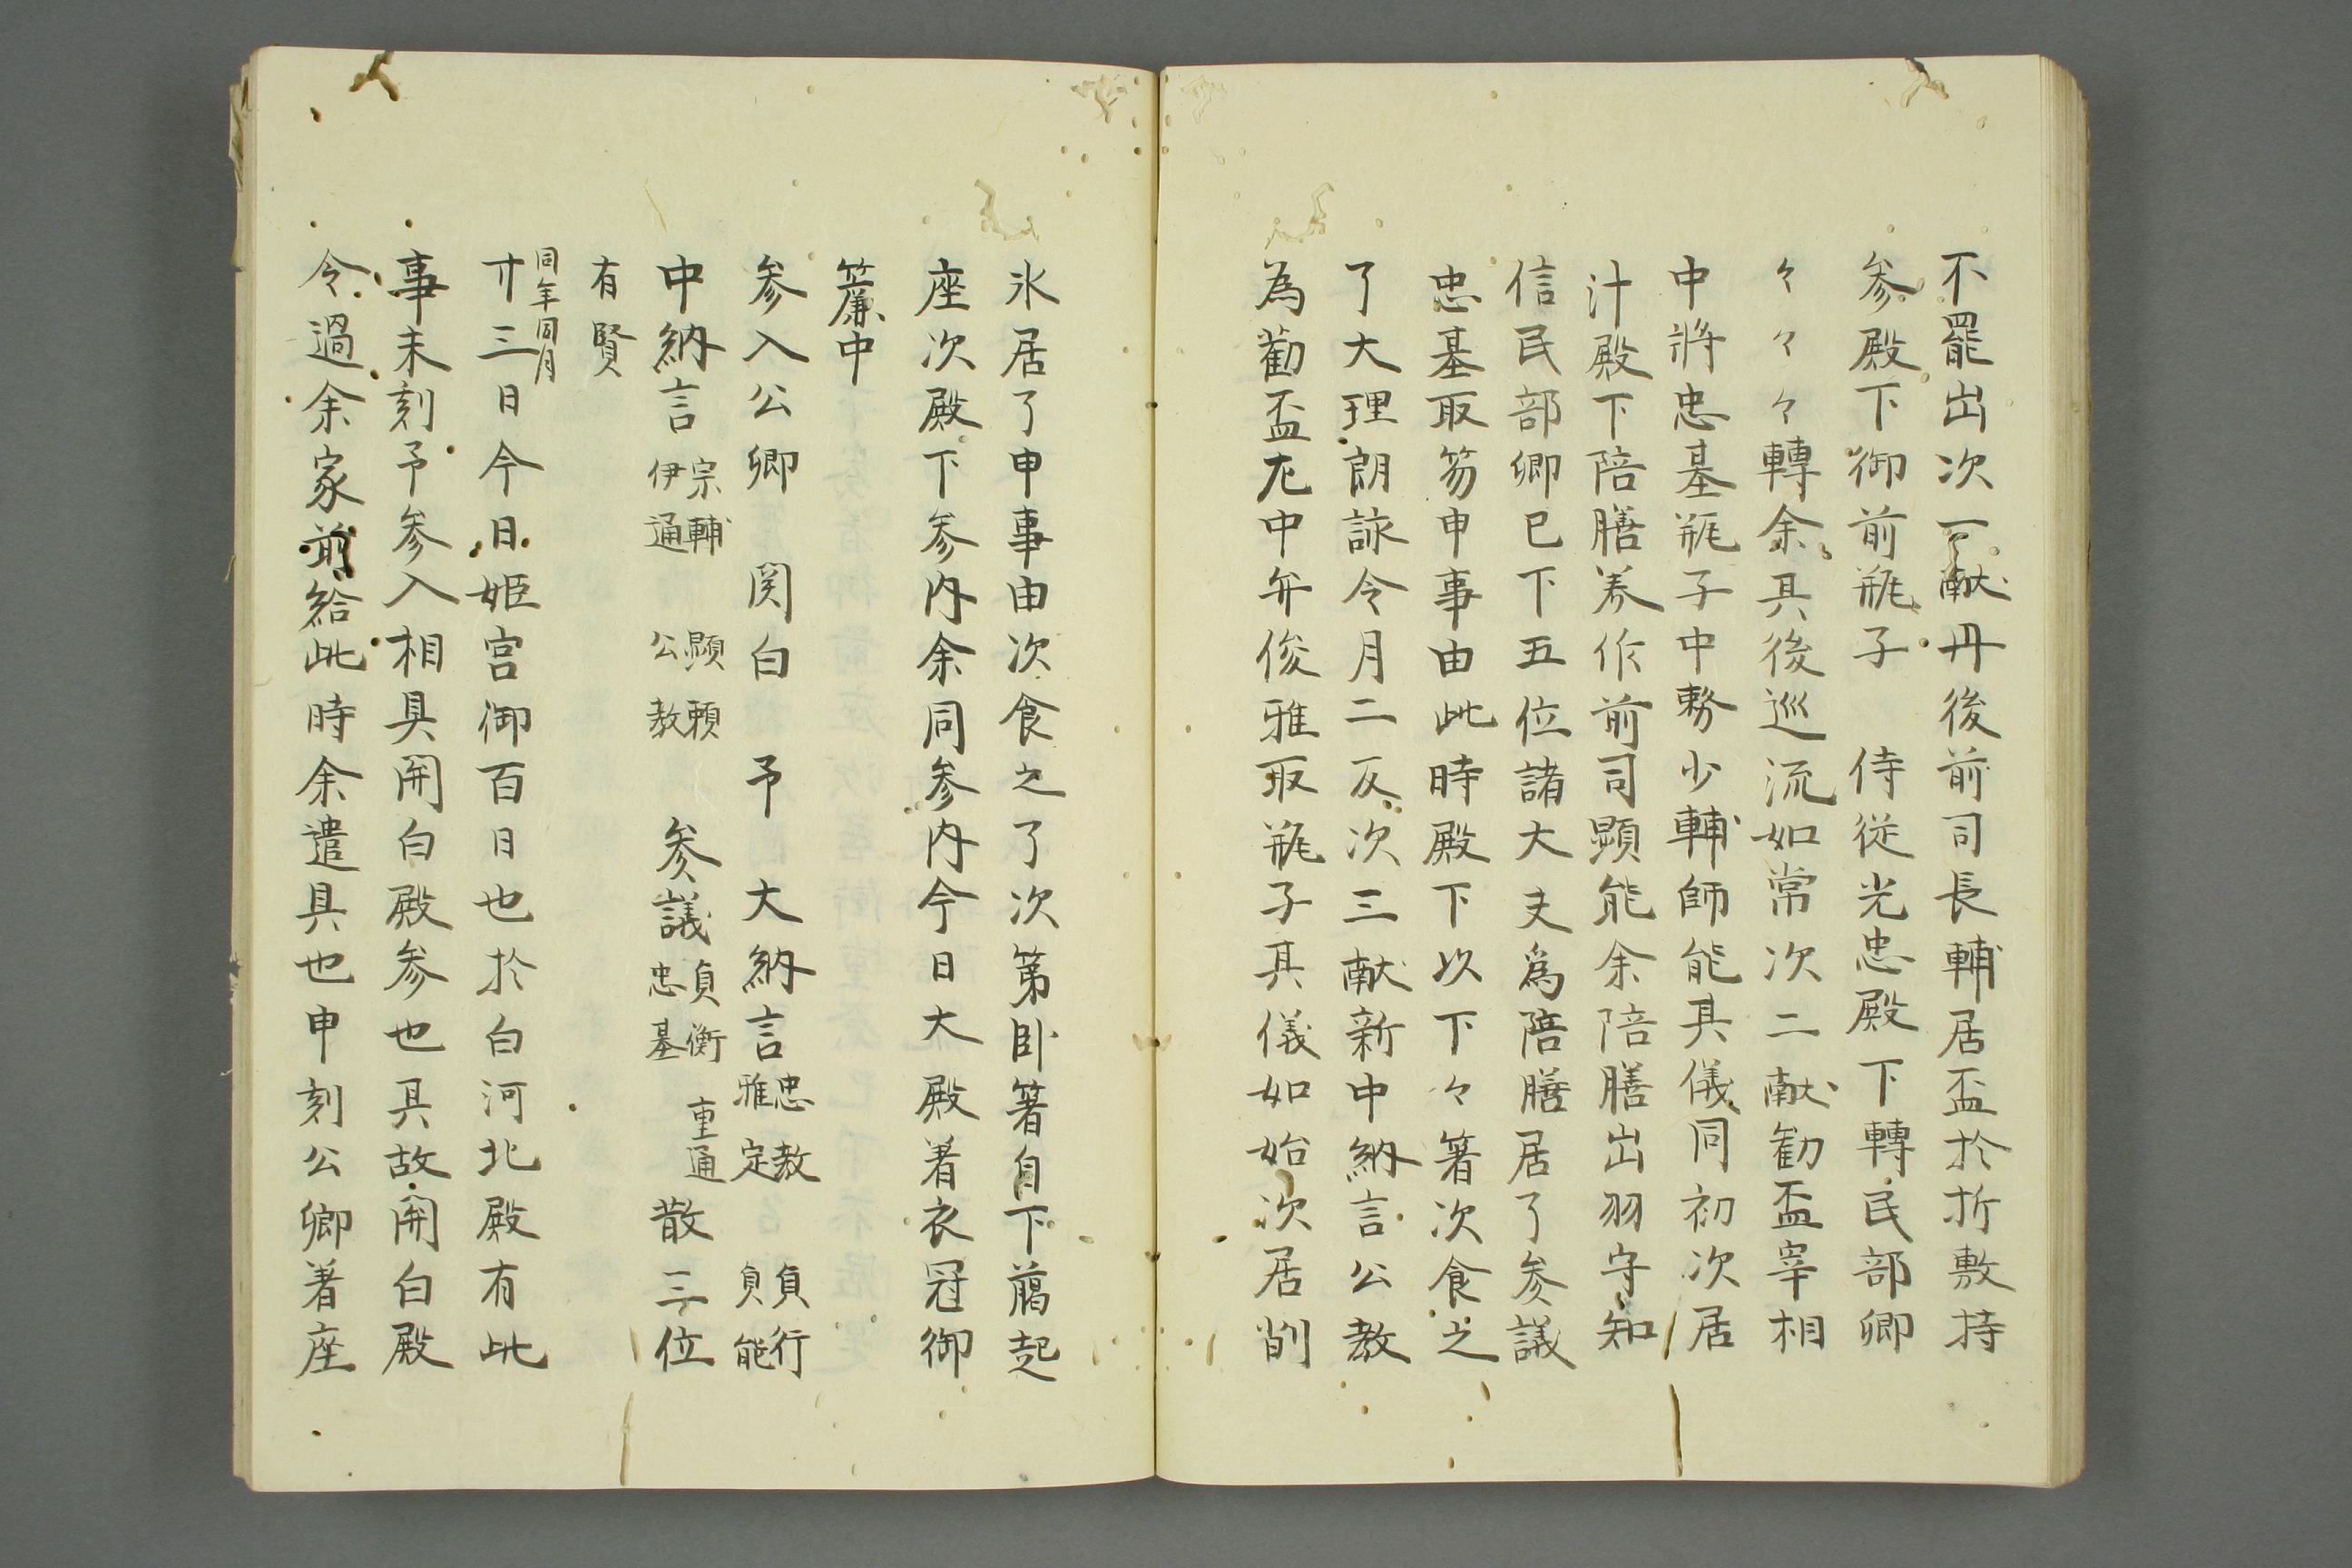 不罷出次一献丹後前司長輔居盃於折敷持
参殿下御前瓶子　侍従光忠殿下轉民部卿
々々々轉余其後巡流如常次二献勧盃宰相
中將忠基瓶子中務少輔師能其儀同初次居
汁殿下陪膳养作前司顕能余陪膳出羽守知
信民部卿已下五位諸大夫為陪膳居了参議
忠基取笏申事由此時殿下以下々箸次食之
了大理朗詠令月二反次三献新中納言公教
為勧盃左中弁俊雅取瓶子其儀如始次居削
氷居了申事由次食之了次第卧箸自下﨟起
座次殿下参内余同参内今日大殿着衣冠御
簾中
参入公卿　関白　予　大納言忠教雅定　負行負能
中納言宗輔伊通　顕頼公教　参議負衡忠基　重通　散三位
有賢
同年同月
廿三日今日姫宮御百日也於白河北殿有此
事未刻予参入相具開白殿参也具故開白殿
令過余家前給此時余遣具也申刻公卿着座